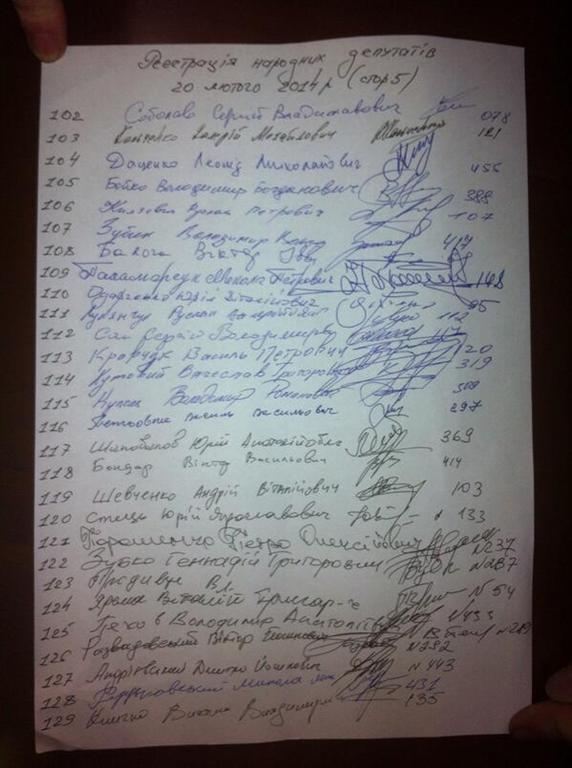 Реєстрація народних депутатів
20 лютого 2014 р (стор 5)
102 Соболєв Сергій Владиславович 078
103 Валерій Михайлович 121
104 Даценко Леонід Миколайович 455
105 Бойко Володимир Богданович 388
106 Князевич Руслан Петрович 107
107 Зубик Володимир 417
108 Балога Віктор Іван
109 Паламарчук Микола Петрович 148
110 Юрій Віталійович 95
111 Лук'янчук Руслан 112
112 Сас Сергій Володимирович 117
113 Кравчук Василь Петрович 120
114 Кутовий Вячеслав Григорович 319
115 Купчак Володимир Романович
116 Петьовка Василь Васильович 297
117 Шаповалов Юрій Анатолійович 369
118 Бондар Віктор Васильович 414
119 Шевченко Андрій Віталійович 103
120 Стець Юрій Ярославович 133
121 Порошенко Петро Олексійович
122 Зубко Геннадій Григорович N237
123 N287
124 Ярема Віталій Григор-ч N 54
125 Володимир Анатолій N433
126 Розвадовський Віктор
127 Андрієвський Дмитро Йосипович N443
128 Микола 431
129 Кличко Віталій Володимир 135